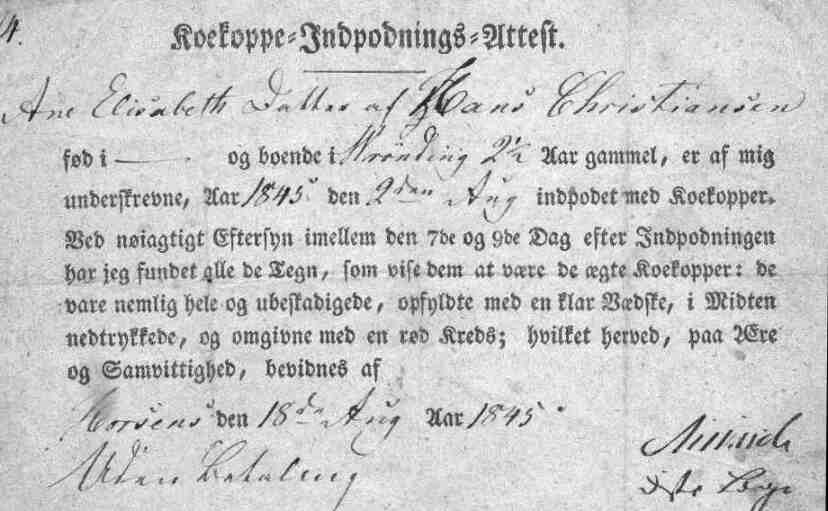 4.
Koekoppe-Indpodnings-Attest.
Ane Elisabeth Datter af Hans Christiansen
fød i — og boende i Wrønding 2½ Aar gammel, er af mig
underskrevne, Aar 1845 den 2den Aug indpodet med Koekopper.
Ved nøiagtigt Eftersyn imellem den 7de og 9de Dag efter Indpodningen
har jeg fundet alle de Tegn, som vise dem at være de ægte Koekopper: de
vare nemlig hele og ubeskadigede, opfyldte med en klar Vædske, i Midten
nedtrykkede, og omgivne med en rød Kreds; hvilket herved, paa Ære
og Samvittighed, bevidnes af
Horsens den 18de Aug Aar 1845.
Uden Betaling